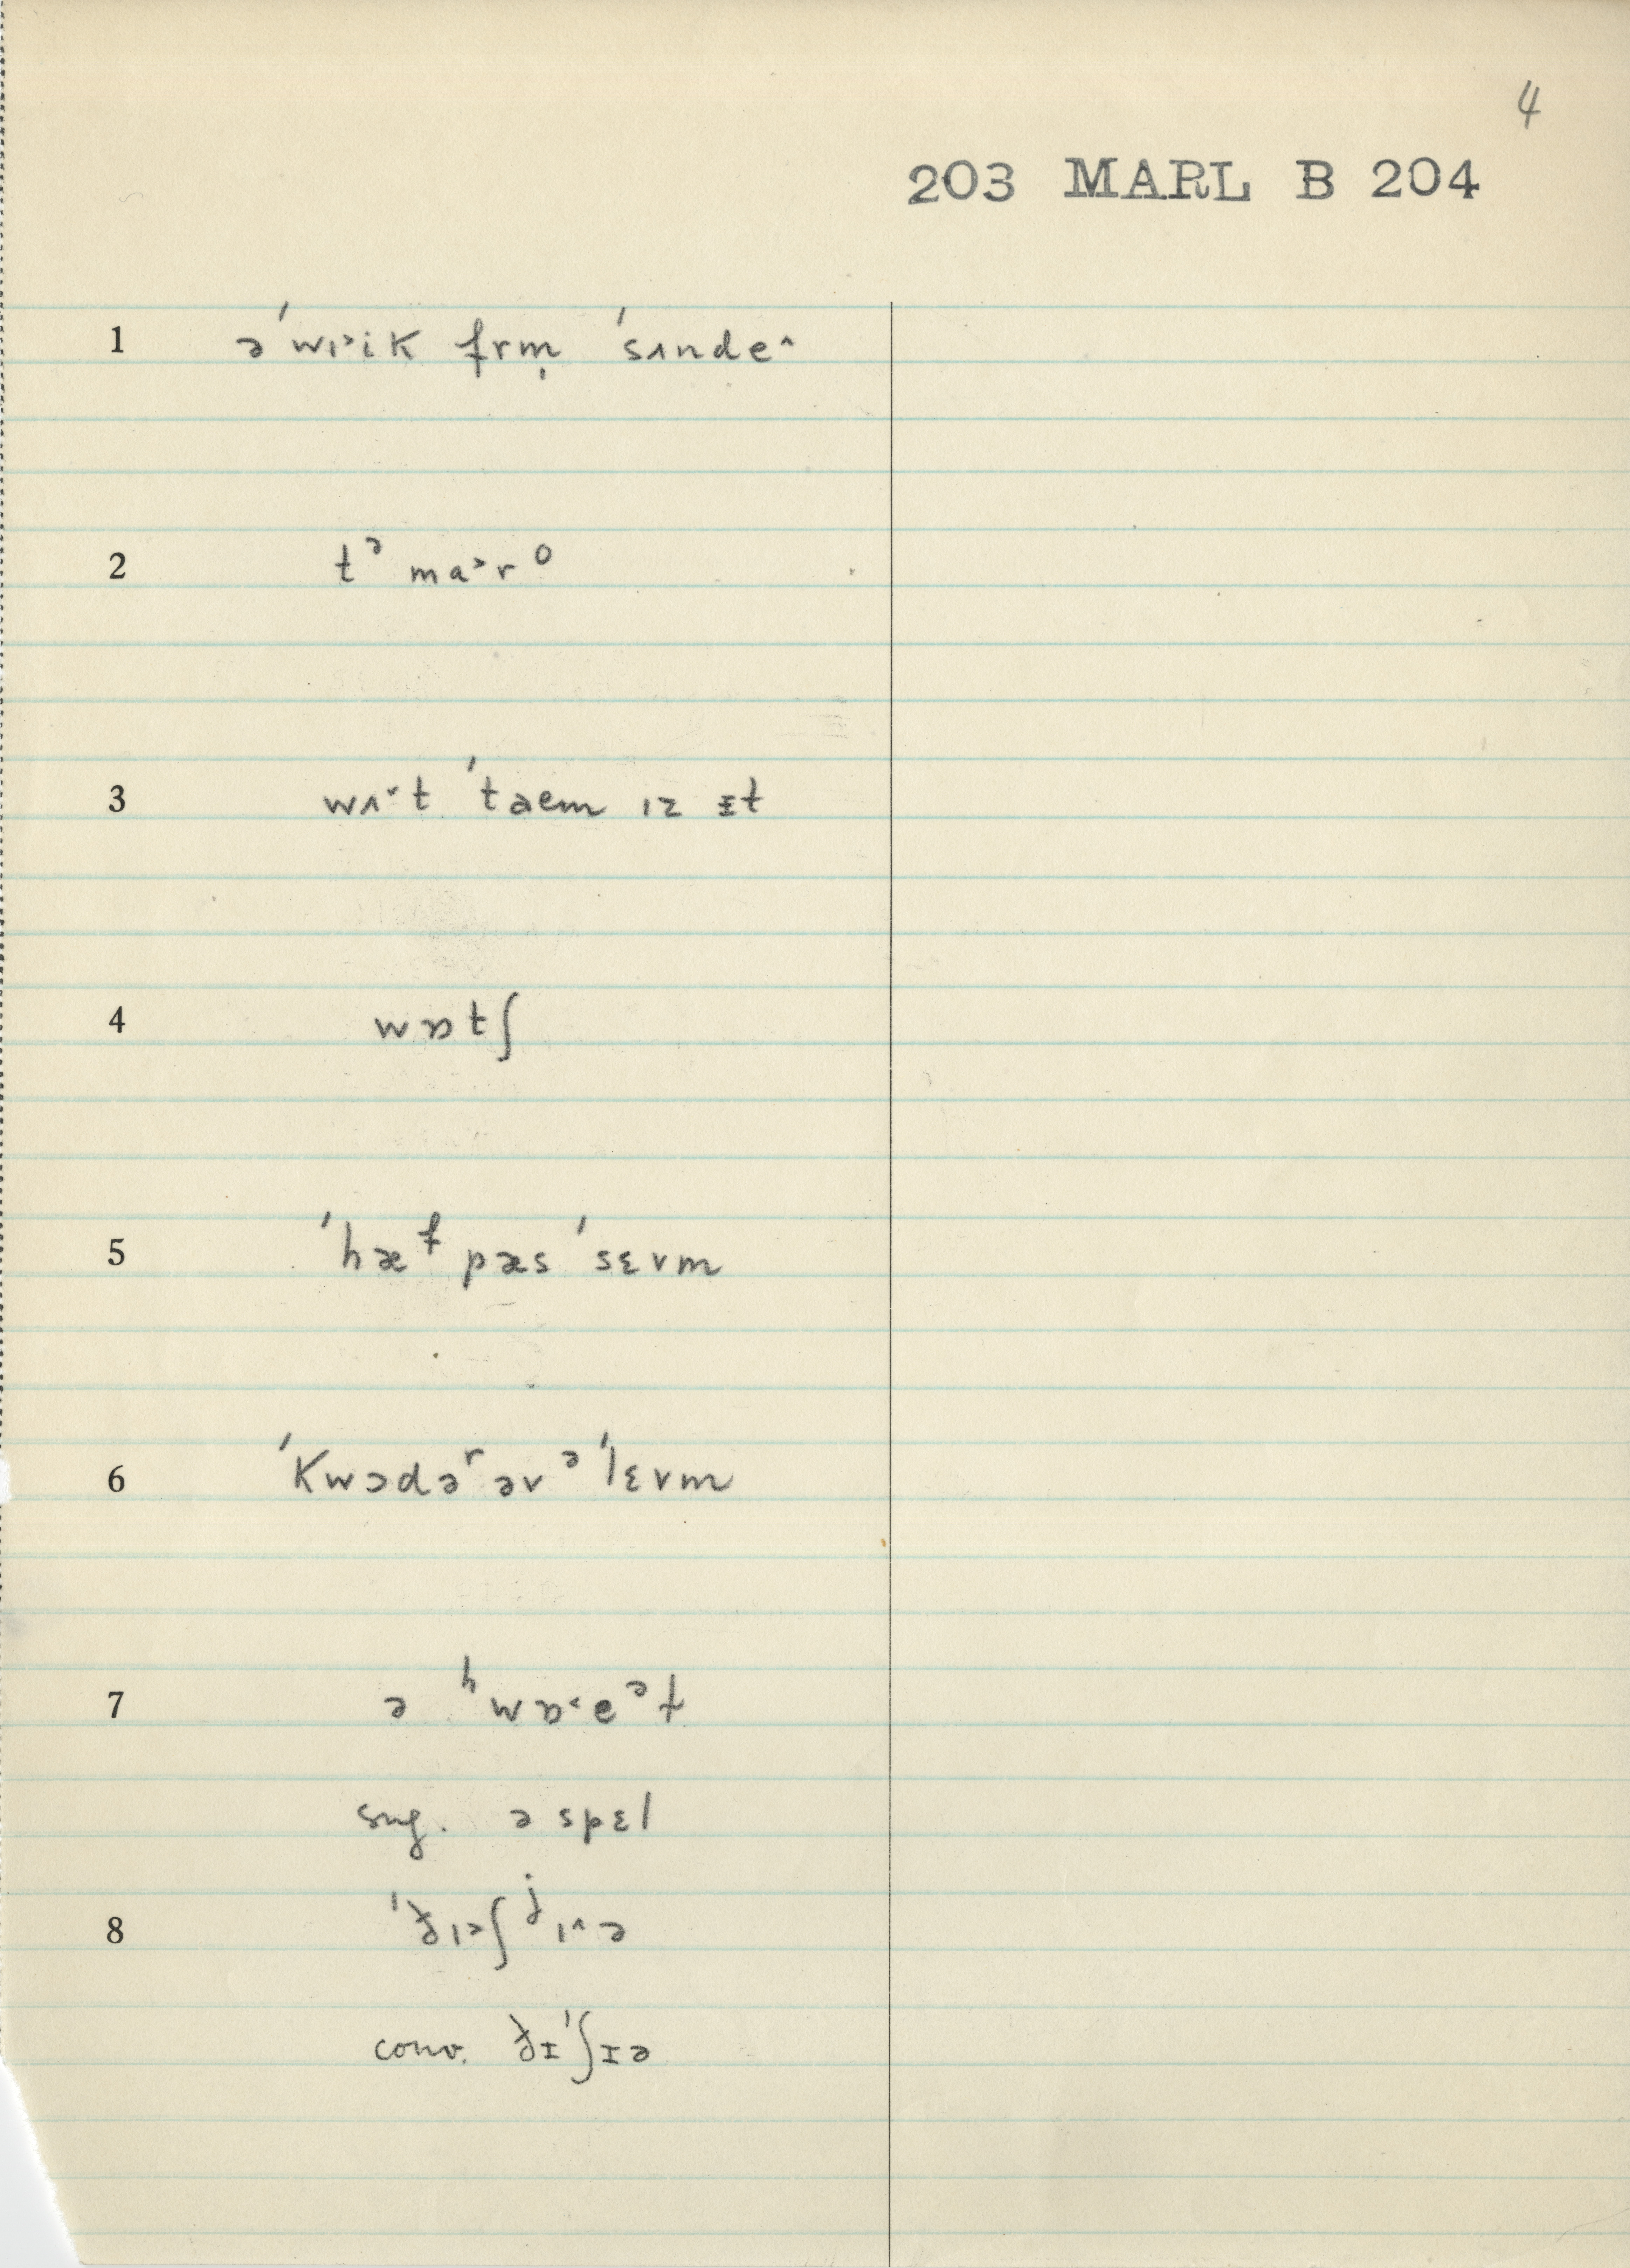 4
203 MARL B 204
1 ə ˈwɪ˃ik frm̩ ˈsʌnde˄
2 tᵊ ma˃rᵒ
3 wʌ˅t ˈtaem ɪz ɪt
4 wɒtʃ
5 ˈhæᶠ pæs ˈsɛvm
6 ˈkwɔdəʳ əv ᵊ ˈlɛvm
7 ə ʰwɒ˂eᵊt
sug. ə spɛl
8 ɪ˃ʃ ʲɪ˄ə
conv.